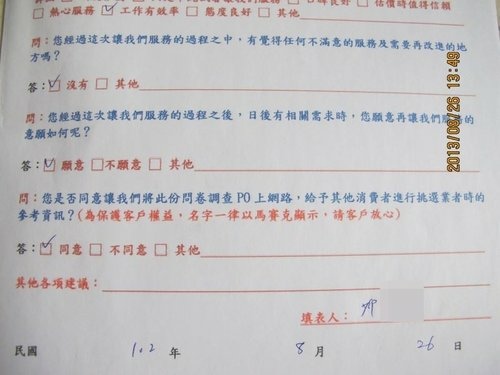 ☐ 熱心服務 ☑ 工作有效率 ☐ 態度良好 ☐ 其他
問：您經過這次讓我們服務的過程之中，有覺得任何不滿意的服務及需要再改進的地
方嗎？
答：☑ 沒有 ☐ 其他
問：您經過這次讓我們服務的過程之後，日後有相關需求時，您願意再讓我們服務的
意願如何呢？
答：☑ 願意 ☐不願意 ☐ 其他
問：您是否同意讓我們將此份問卷調查PO上網路，給予其他消費者進行挑選業者時的
參考資訊？(為保護客戶權益，名字一律以馬賽克顯示，請客戶放心)
答：☑ 同意 ☐ 不同意 ☐ 其他
其他各項建議：
填表人：
民國 102 年 8 月 26 日
2013/08/26 13:49